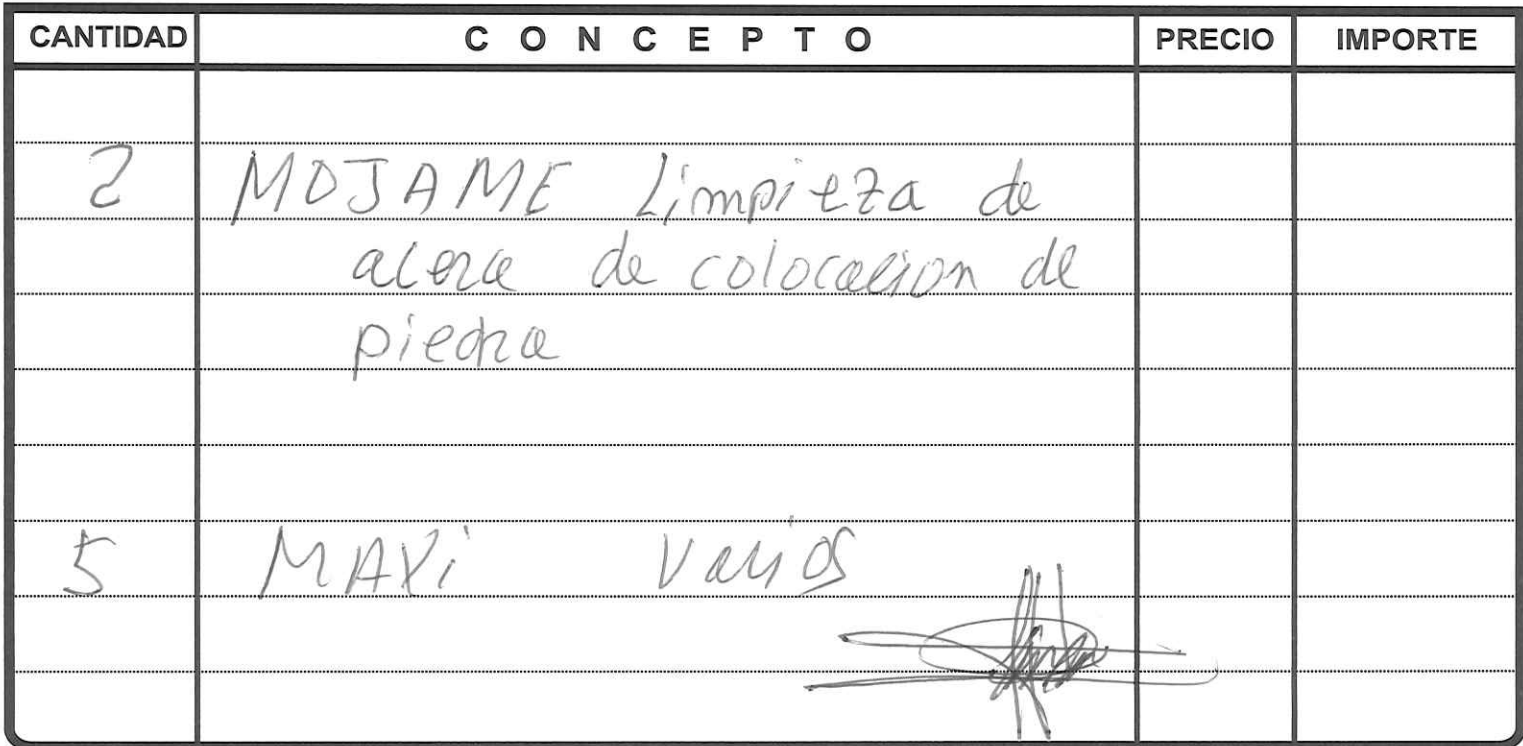 CANTIDAD CONCEPTO PRECIO IMPORTE
2 MOJAME Limpieza de
acera de colocacion de
piedra
5 MAXi Varios